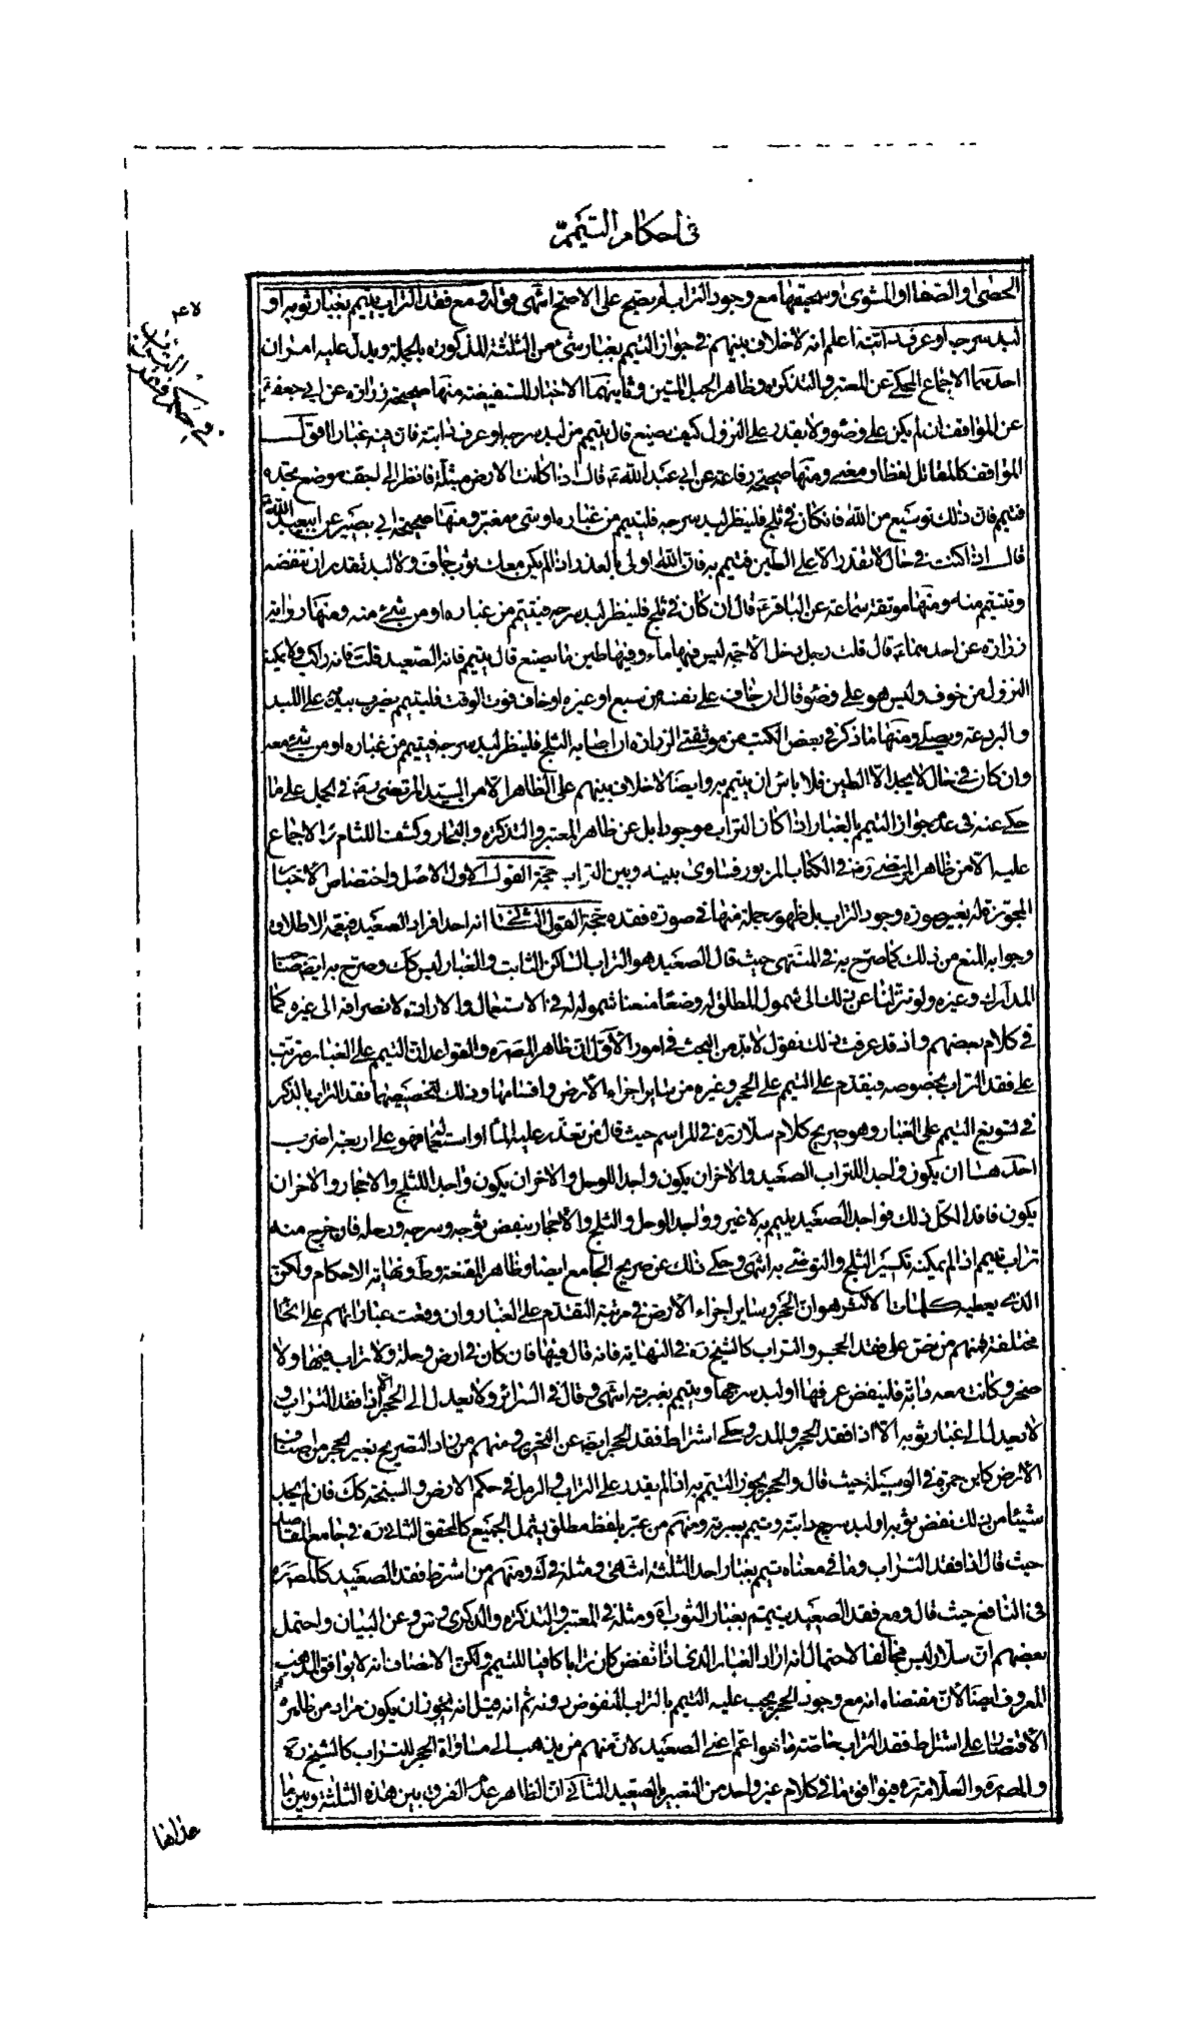 في احكام التيمم
الحصى او الصفا او المشوى او سحيقها مع وجود التراب لم يصح على الاصح انتهى قوله ومع فقد التراب يتيمم بغبار ثوبه او
لبد سرجه او عرف دابته اعلم انه لا خلاف بينهم في جواز التيمم بغبار شئ من الثلثة المذكورة بالجملة ويدل عليه امران
احدهما الاجماع المحكى عن المعتبر والتذكرة وظاهر الحبل المتين وثانيهما الاخبار المستفيضة منها صحيحة زرارة عن ابي جعفر ع
عن المواقف ان لم يكن على وضوء ولا يقدر على النزول كيف يصنع قال يتيمم من لبد سرجه او عرف دابته فان فيه غبارا اقول
المواقف كالمقاتل لفظا ومعنى ومنها صحيحة رفاعة عن ابي عبد الله ع قال اذا كانت الارض مبتلة فانظر الى اجف موضع تجده
فتيمم فان ذلك توسيع من الله فان كان في ثلج فلينظر لبد سرجه فليتيمم من غباره او شئ مغبر ومنها صحيحة ابي بصير عن ابيعبد الله ع
قال اذا كنت في حال لا تقدر الا على الطين فتيمم به فان الله اولى بالعذر اذا لم يكن معك ثوب جاف ولا لبد تقدر ان تنفضه
وتتيمم منه ومنها موثقة سماعة عن الباقر ع قال ان كان في ثلج فلينظر لبد سرجه فيتيمم من غباره او من شئ منه ومنها رواية
زرارة عن احدهما ع قال قلت رجل دخل الاجمة ليس فيها ماء وفيها طين ما يصنع قال يتيمم فانه الصعيد قلت فانه راكب ولا يمكنه
النزول من خوف وليس هو على وضوء قال ان خاف على نفسه من سبع او غيره او خاف فوت الوقت فليتيمم يضرب بيده على اللبد
والبردعة ويصلى ومنها ما ذكر في بعض الكتب من موثقتى لزرارة ان اصابه الثلج فلينظر لبد سرجه فيتيمم من غباره او من شئ معه
وان كان في حال لا يجد الا الطين فلا باس ان يتيمم به وايضا لا خلاف بينهم على الظاهر الا من السيد المرتضى رض في الجمل على ما
حكى عنه في عدم جواز التيمم بالغبار اذا كان التراب موجودا بل عن ظاهر المعتبر والتذكرة والبحار وكشف اللثام الاجماع
عليه الا من ظاهر المرتضى رض في الكتاب المزبور فساوى بينه وبين التراب حجة القول الاول الاصل واختصاص الاخبار
المجوزة له بغير صورة وجود التراب بل ظهور جملة منها في صورة فقده حجة القول الثاني انه احد افراد الصعيد فيعمه الاطلاق
وجوابه المنع من ذلك كما صرح به في المنتهى حيث قال الصعيد هو التراب الساكن الثابت والغبار ليس كك وصرح به ايضا صاحب
المدارك وغيره ولو تنزلنا عن ذلك الى شمول المطلق له وضعا منعنا شموله له في الاستعمال والارادة لانصرافه الى غيره كما
في كلام بعضهم واذ قد عرفت ذلك نقول لا بد من البحث في امور الاول ان ظاهر المصره والقواعد ان التيمم على الغبار مترتب
على فقد التراب بخصوصه فيتقدم على التيمم على الحجر وغيره من ساير اجزاء الارض واقسامها وذلك لتخصيصهما فقد التراب بالذكر
في تسويغ التيمم على الغبار وهو صريح كلام سلار ره في المراسم حيث قال من تعذر عليه الماء او استعماله فهو على اربعة اضرب
احدها ان يكون واجد التراب الصعيد والاخر ان يكون واجد الوحل والاخر ان يكون واجد الثلج والاحجار والاخر ان
يكون فاقد الكل ذلك فواجد الصعيد يتيمم به لا غير وواجد الوحل والثلج والاحجار ينفض ثوبه وسرجه ورحله فان خرج منه
تراب تيمم اذا لم يمكنه تكسير الثلج والتوضى به انتهى وحكى ذلك عن صريح الجامع ايضا وظاهر المقنعة وط ونهاية الاحكام ولكن
الذى يعطيه كلمات الاكثر هو ان الحجر وساير اجزاء الارض في مرتبة التقدم على الغبار وان وقعت عباراتهم على انحاء
مختلفة فمنهم من نص على فقد الحجر والتراب كالشيخ ره في النهاية فانه قال فيها فان كان في ارض وحلة ولا تراب فيها ولا
صخر وكانت معه دابة فلينفض عرفها او لبد سرجها ويتيمم بغبرته انتهى وقال في السرائر ولا يعدل الى الحجر الا اذا فقد التراب و
لا يعدل الى غبار ثوبه الا اذا فقد الحجر والمدر وحكى اشتراط فقد الحجر ايضا عن التحرير ومنهم من زاد التصريح بغير الحجر من اصناف
الارض كابن حمزة في الوسيلة حيث قال والحجر يجوز التيمم به اذا لم يقدر على التراب والرمل في حكم الارض والسبخة كك فان لم يجد
شيئا من ذلك نفض ثوبه او لبد سرج دابته وتيمم بغبرته ومنهم من عبر بلفظ مطلق يشمل الجميع كالمحقق الثاني ره في جامع المقاصد
حيث قال اذا فقد التراب وما في معناه تيمم بغبار احد الثلثة انتهى ومثله في ك ومنهم من اشترط فقد الصعيد كالمصره
في النافع حيث قال ومع فقد الصعيد يتيمم بغبار الثوب اه ومثله في المعتبر والتذكرة والذكرى وس وعن البيان واحتمل
بعضهم ان سلار ليس مخالفا لاحتمال انه اراد الغبار الذى اذا نفض كان ترابا كافيا للتيمم ولكن الانصاف انه لا يوافق المذهب
المعروف ايضا لان مقتضاه انه مع وجود الحجر يجب عليه التيمم بالتراب المنفوض وفيه ثم انه قيل انه يجوز ان يكون مراد من ظاهره
الاقتصار على اشتراط فقد التراب خاصة ما هو اعم اعنى الصعيد لان منهم من يذهب الى مساواة الحجر للتراب كالشيخ ره
والمصره والعلامة ره فيوافق ما في كلام غير واحد من التعبير بالصعيد الثاني ان الظاهر عدم الفرق بين هذه الثلثة وبين ما
عداها